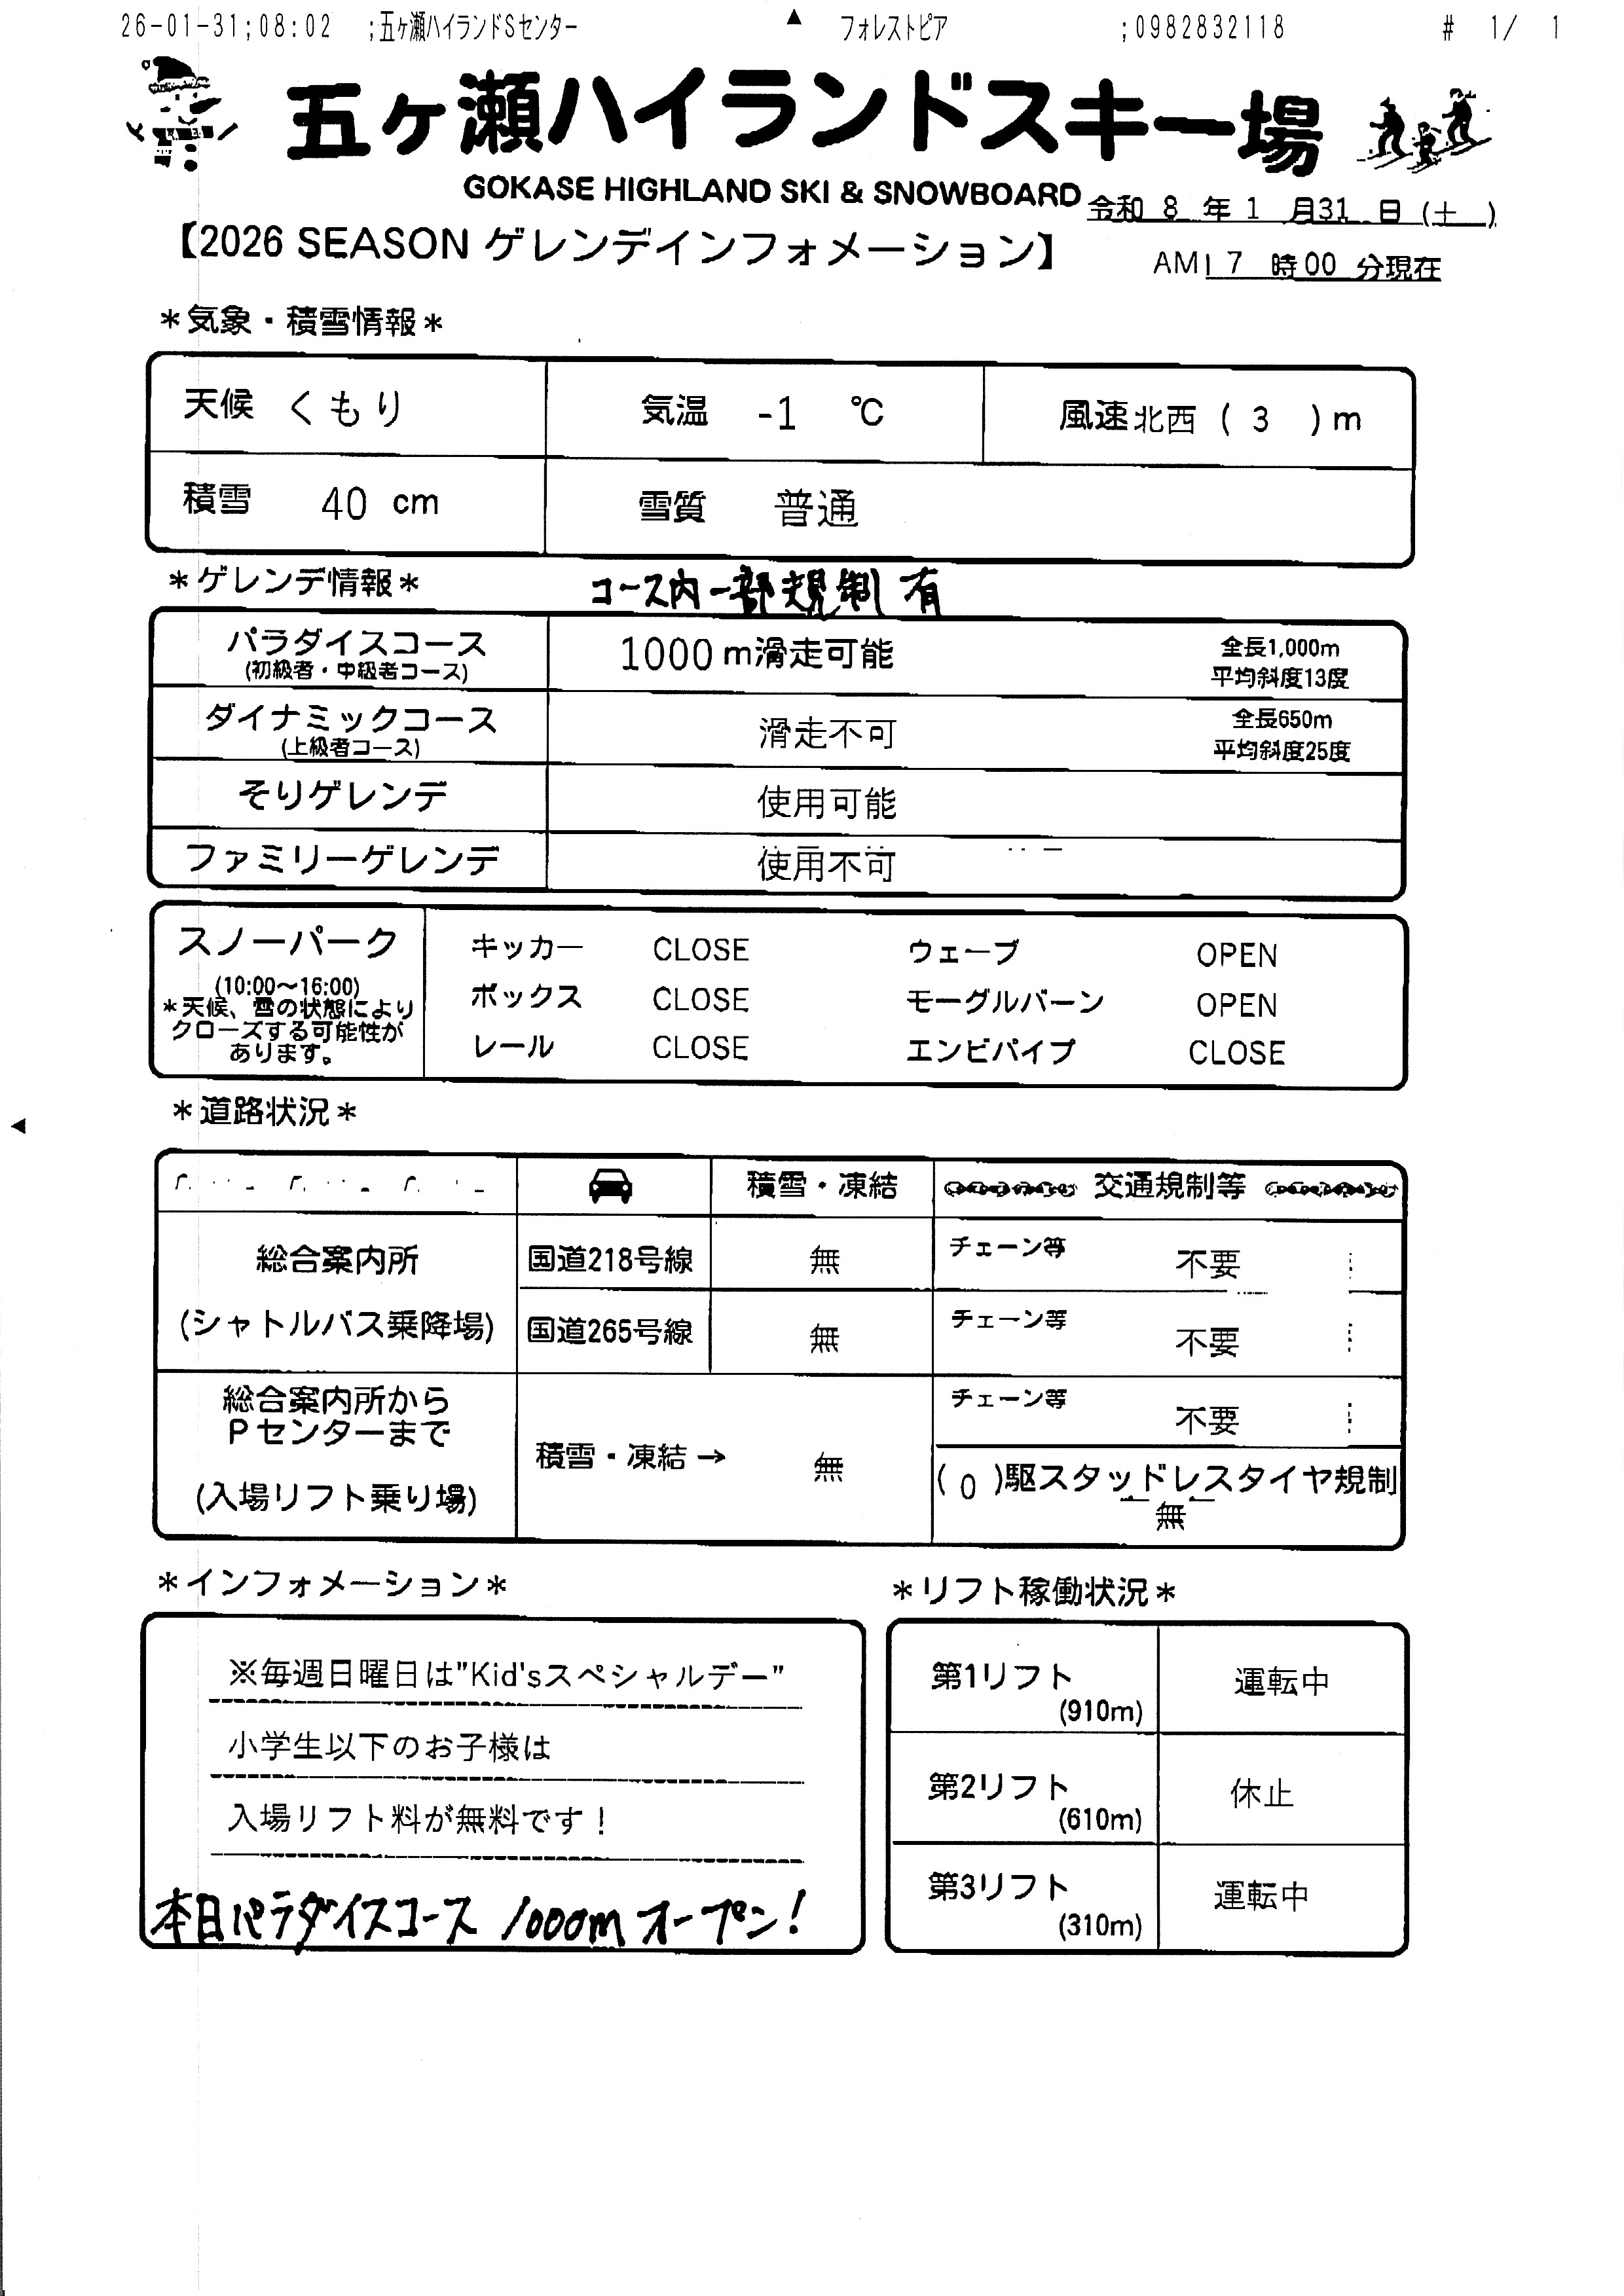 26-01-31;08:02 ;五ヶ瀬ハイランドSセンター ▲ フォレストピア ;0982832118 # 1/ 1
五ヶ瀬ハイランドスキー場
GOKASE HIGHLAND SKI & SNOWBOARD
令和 8 年 1 月31 日 (土 )
【2026 SEASON ゲレンデインフォメーション】
AM 7 時00 分現在
*気象・積雪情報*
天候 くもり 気温 -1 ℃ 風速北西 ( 3 )m
積雪 40 cm 雪質 普通
*ゲレンデ情報* コース内一部規制有
パラダイスコース 1000m滑走可能 全長1,000m
(初級者・中級者コース) 平均斜度13度
ダイナミックコース 滑走不可 全長650m
(上級者コース) 平均斜度25度
そりゲレンデ 使用可能
ファミリーゲレンデ 使用不可
スノーパーク キッカー CLOSE ウェーブ OPEN
(10:00~16:00) ボックス CLOSE モーグルバーン OPEN
*天候、雪の状態により
クローズする可能性が
あります。 レール CLOSE エンビパイプ CLOSE
*道路状況*
積雪・凍結 交通規制等
総合案内所 国道218号線 無 チェーン等 不要
(シャトルバス乗降場) 国道265号線 無 チェーン等 不要
総合案内所から チェーン等 不要
Pセンターまで 積雪・凍結→ 無
(入場リフト乗り場) ( 0 )駆スタッドレスタイヤ規制
無
*インフォメーション*
※毎週日曜日は"Kid'sスペシャルデー"
小学生以下のお子様は
入場リフト料が無料です!
本日パラダイスコース 1000mオープン!
*リフト稼働状況*
第1リフト 運転中
(910m)
第2リフト 休止
(610m)
第3リフト 運転中
(310m)